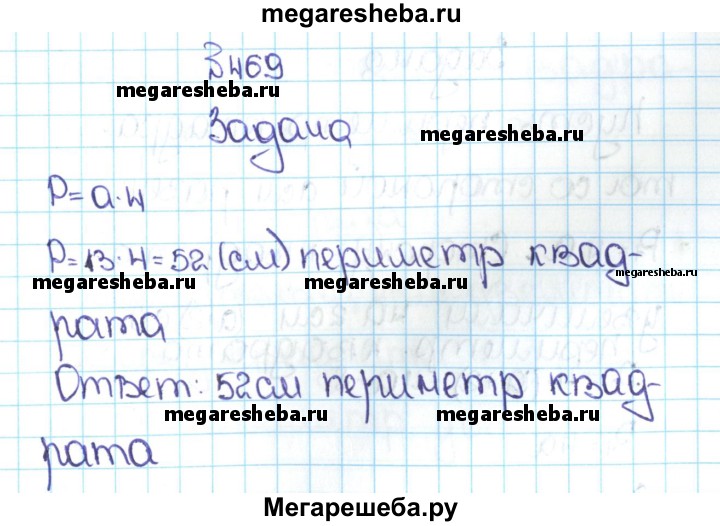 megaresheba.ru
№469
megaresheba.ru
Задача
megaresheba.ru
P=a·4
P=13·4=52 (см) периметр квад-
megaresheba.ru
megaresheba.ru
megaresheba.ru
рата
Ответ: 52см периметр квад-
megaresheba.ru
megaresheba.ru
рата
Мегарешеба.ру